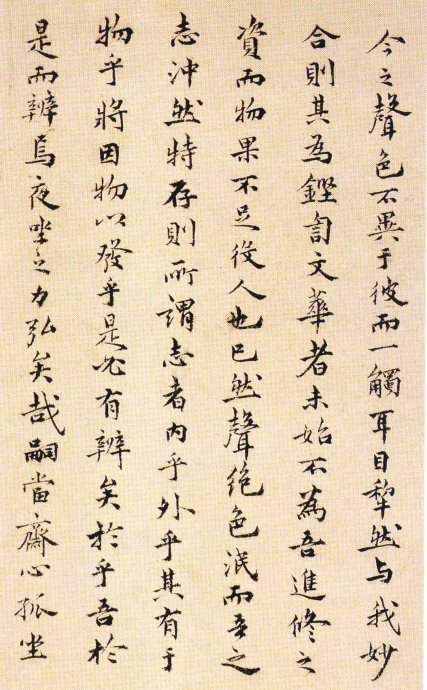 今之聲色不異于彼而一觸耳目犂然与我妙
合則其為鏗訇文華者未始不為吾進修之
資而物果不足役人也已然聲絶色泯而吾之
志沖然特存則所謂志者内乎外乎其有于
物乎將因物以發乎是必有辨矣於乎吾於
是而辨焉夜坐之力弘矣哉嗣當齋心孤坐